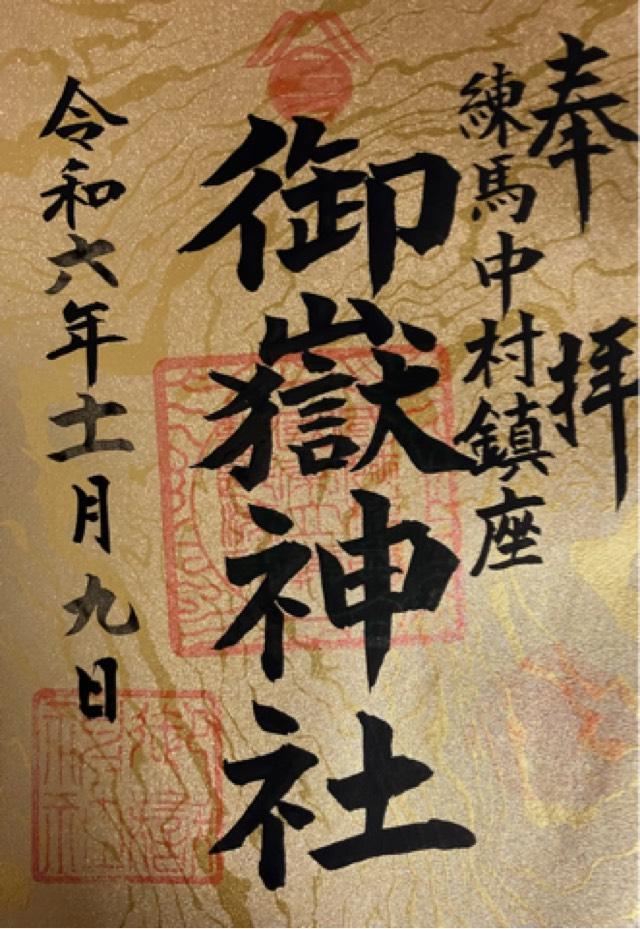 奉拝
練馬中村鎮座
御嶽神社
令和六年十一月九日